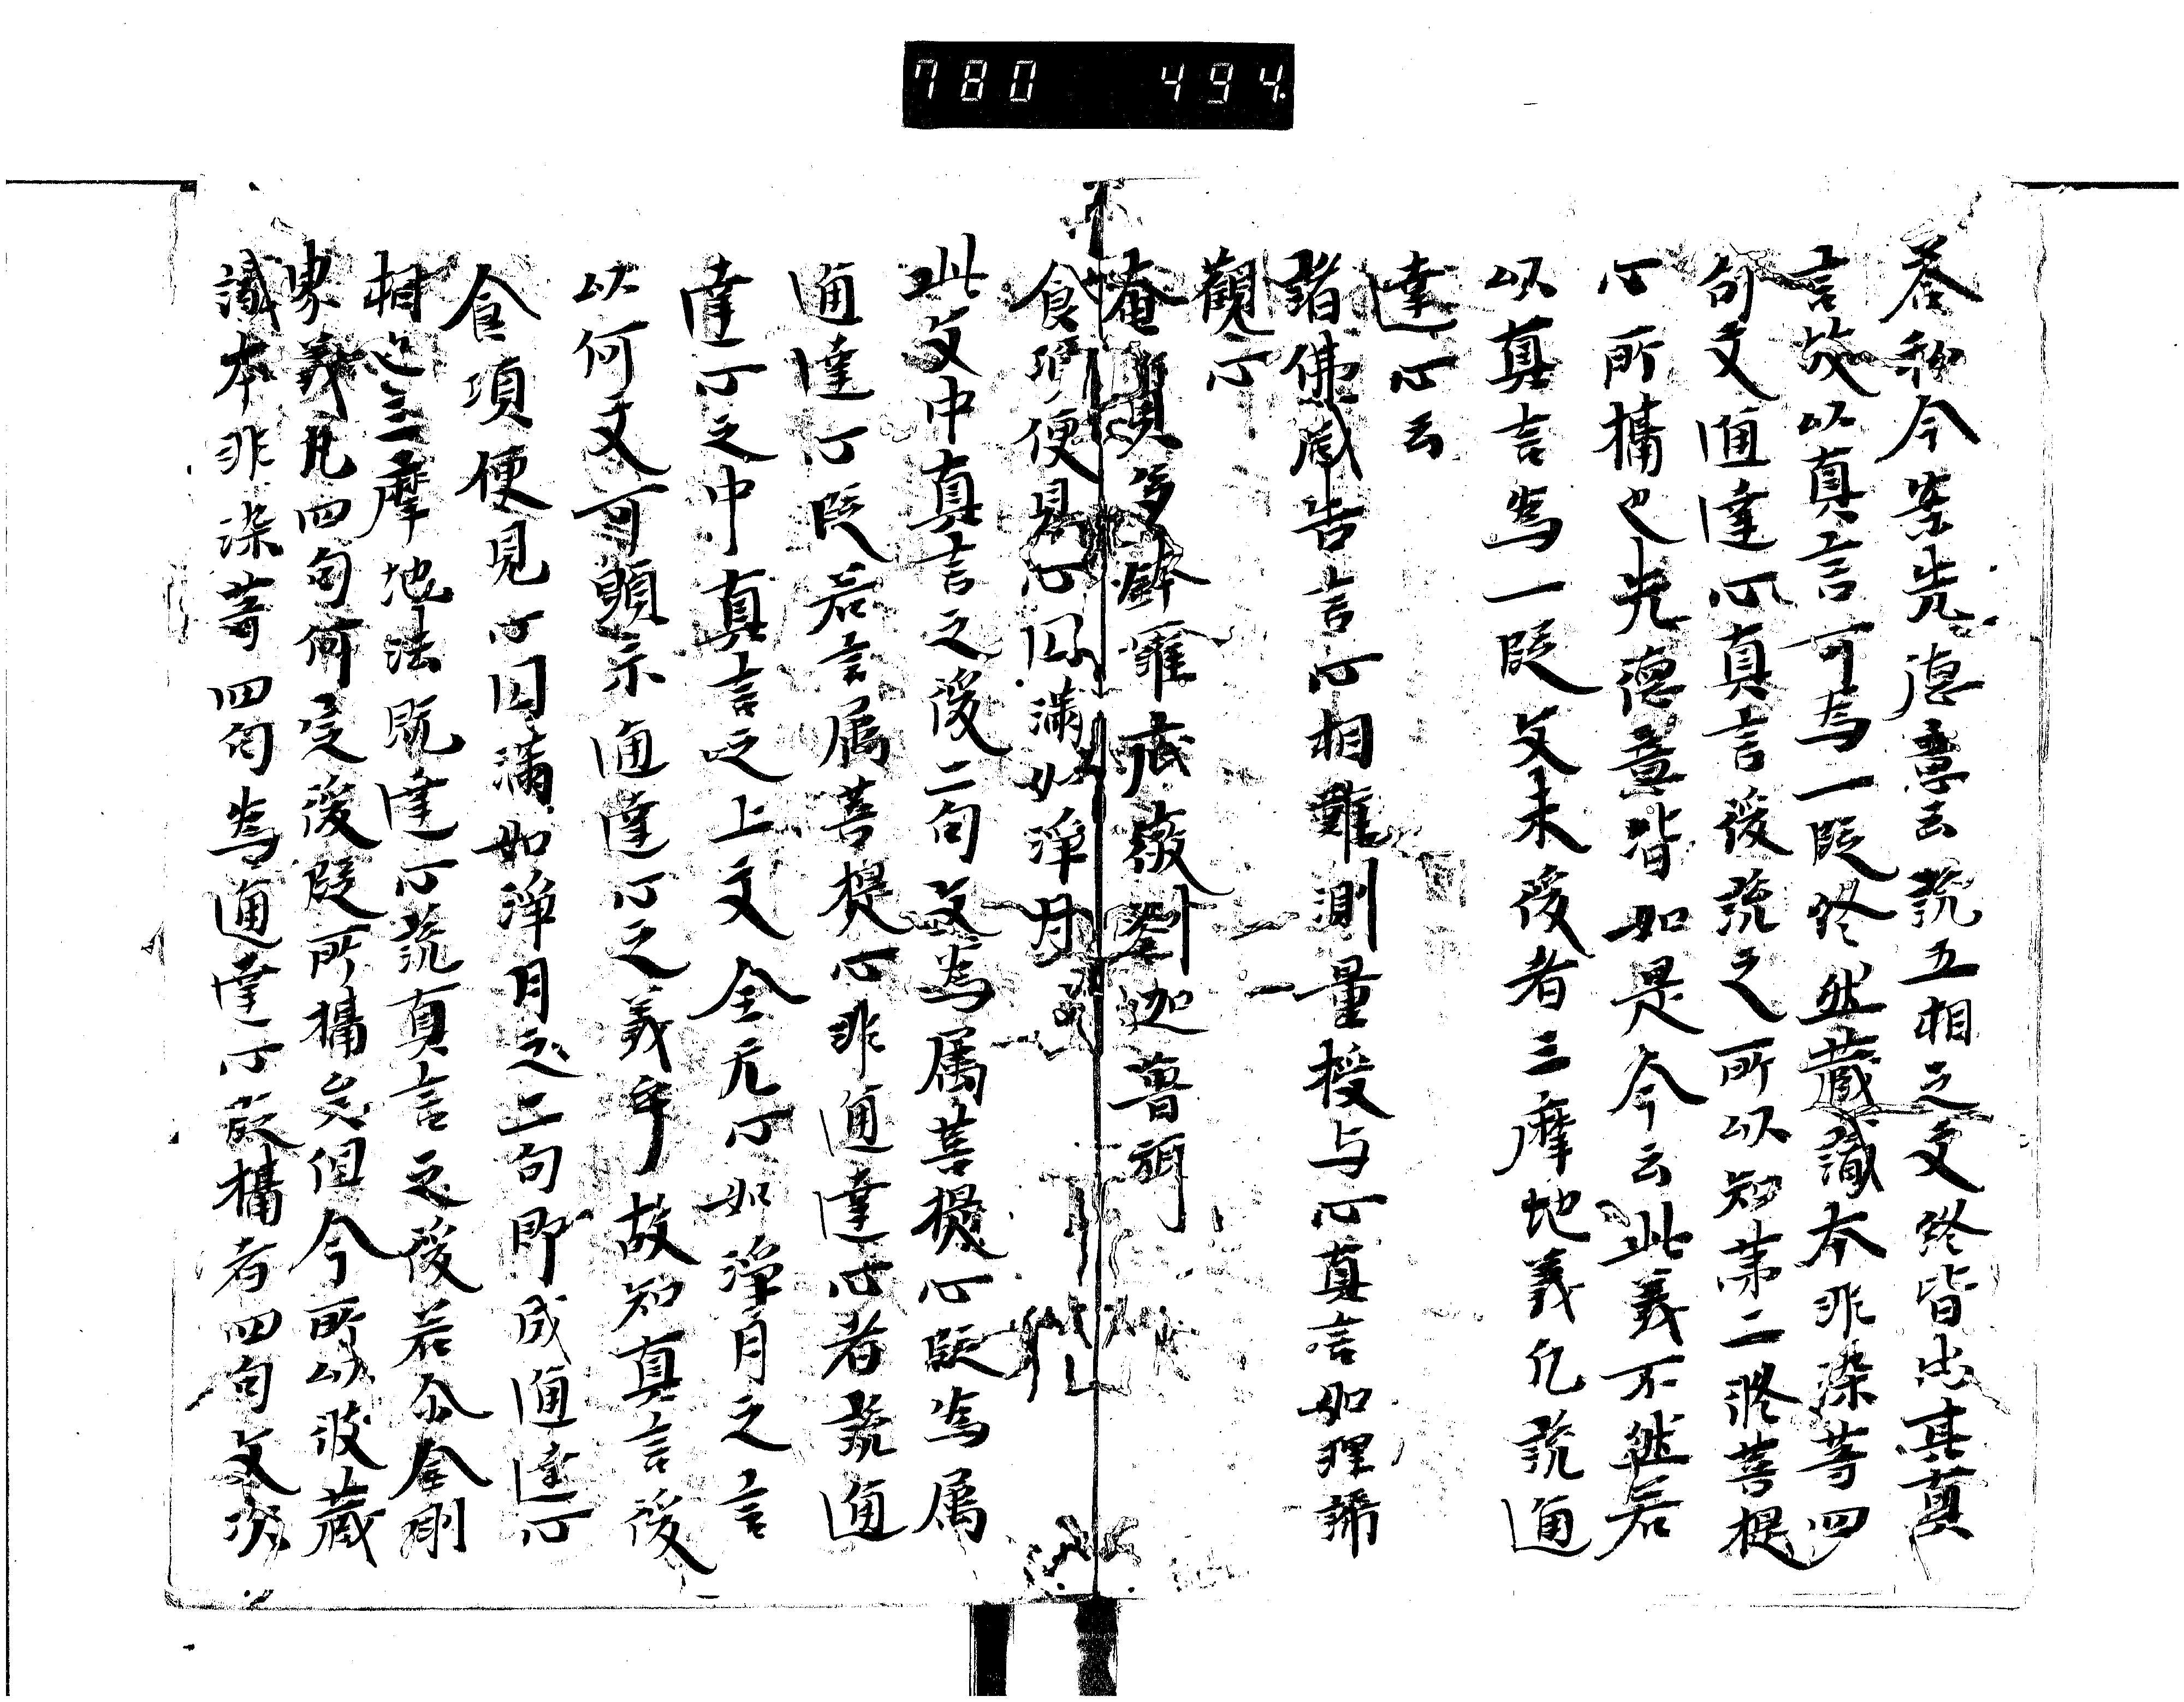 780 494
答和今案先德意云說五相之文終皆出其真
言故以真言可为一段終然藏識本非染等四
句文通達心真言後說之所以知苐二終菩提
心所攝也先德意皆如是今云此義不然若
以真言為一段文末後者三摩地義凡說通
達心云
諸佛咸告言心相難測量授与心真言如理諦
觀心
唵質多鉢羅底薇𠼝迦嚕弭
食頃便見心円滿如淨月
此文中真言之後二句文為属菩提心段為属
通達心段若言属菩提心非通達心者說通
達心之中真言之上文全无心如淨月之言
以何文可顯示通達心之義乎故知真言後
食頃便見心円滿如淨月之二句即成通達心
相也三摩地法既達心說真言之後若金剛
界義凡四句何受後段所攝矣但今所以彼藏
識本非染等四句為通達心故攝者四句文次